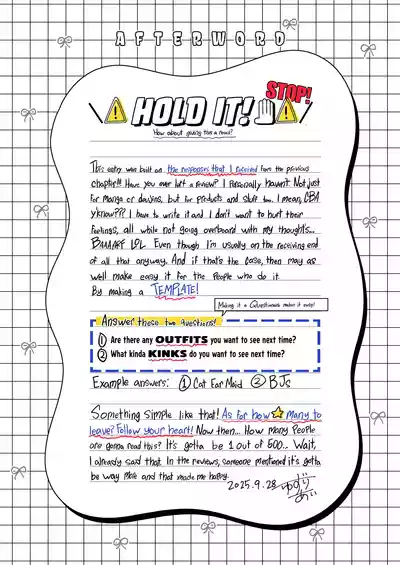 AFTERWORD
STOP!
HOLD IT!
How about giving this a read?
This entry was built on the responses that I received from the previous
chapter!!! Have you ever left a review? I personally haven't. Not just
for manga or doujins, but for products and stuff too. I mean, CBA
y'know??? I have to write it and I don't want to hurt their
feelings, all while not going overboard with my thoughts...
BAAARF LOL Even though I'm usually on the receiving end
of all that anyway. And if that's the case, then may as
well make easy it for the people who do it.
By making a TEMPLATE!
Making it a Questionnaire makes it easy!
Answer these two questions!
① Are there any OUTFITS you want to see next time?
② What kinda KINKS do you want to see next time?
Example answers: ① Cat Ear Maid ② BJs
Something simple like that! As for how ☆ many to
leave? Follow your heart! Now then... How many people
are gonna read this? It's gotta be 1 out of 500... Wait,
I already said that. In the reviews, someone mentioned it's gotta
be way more and that made me happy.
2025.9.28